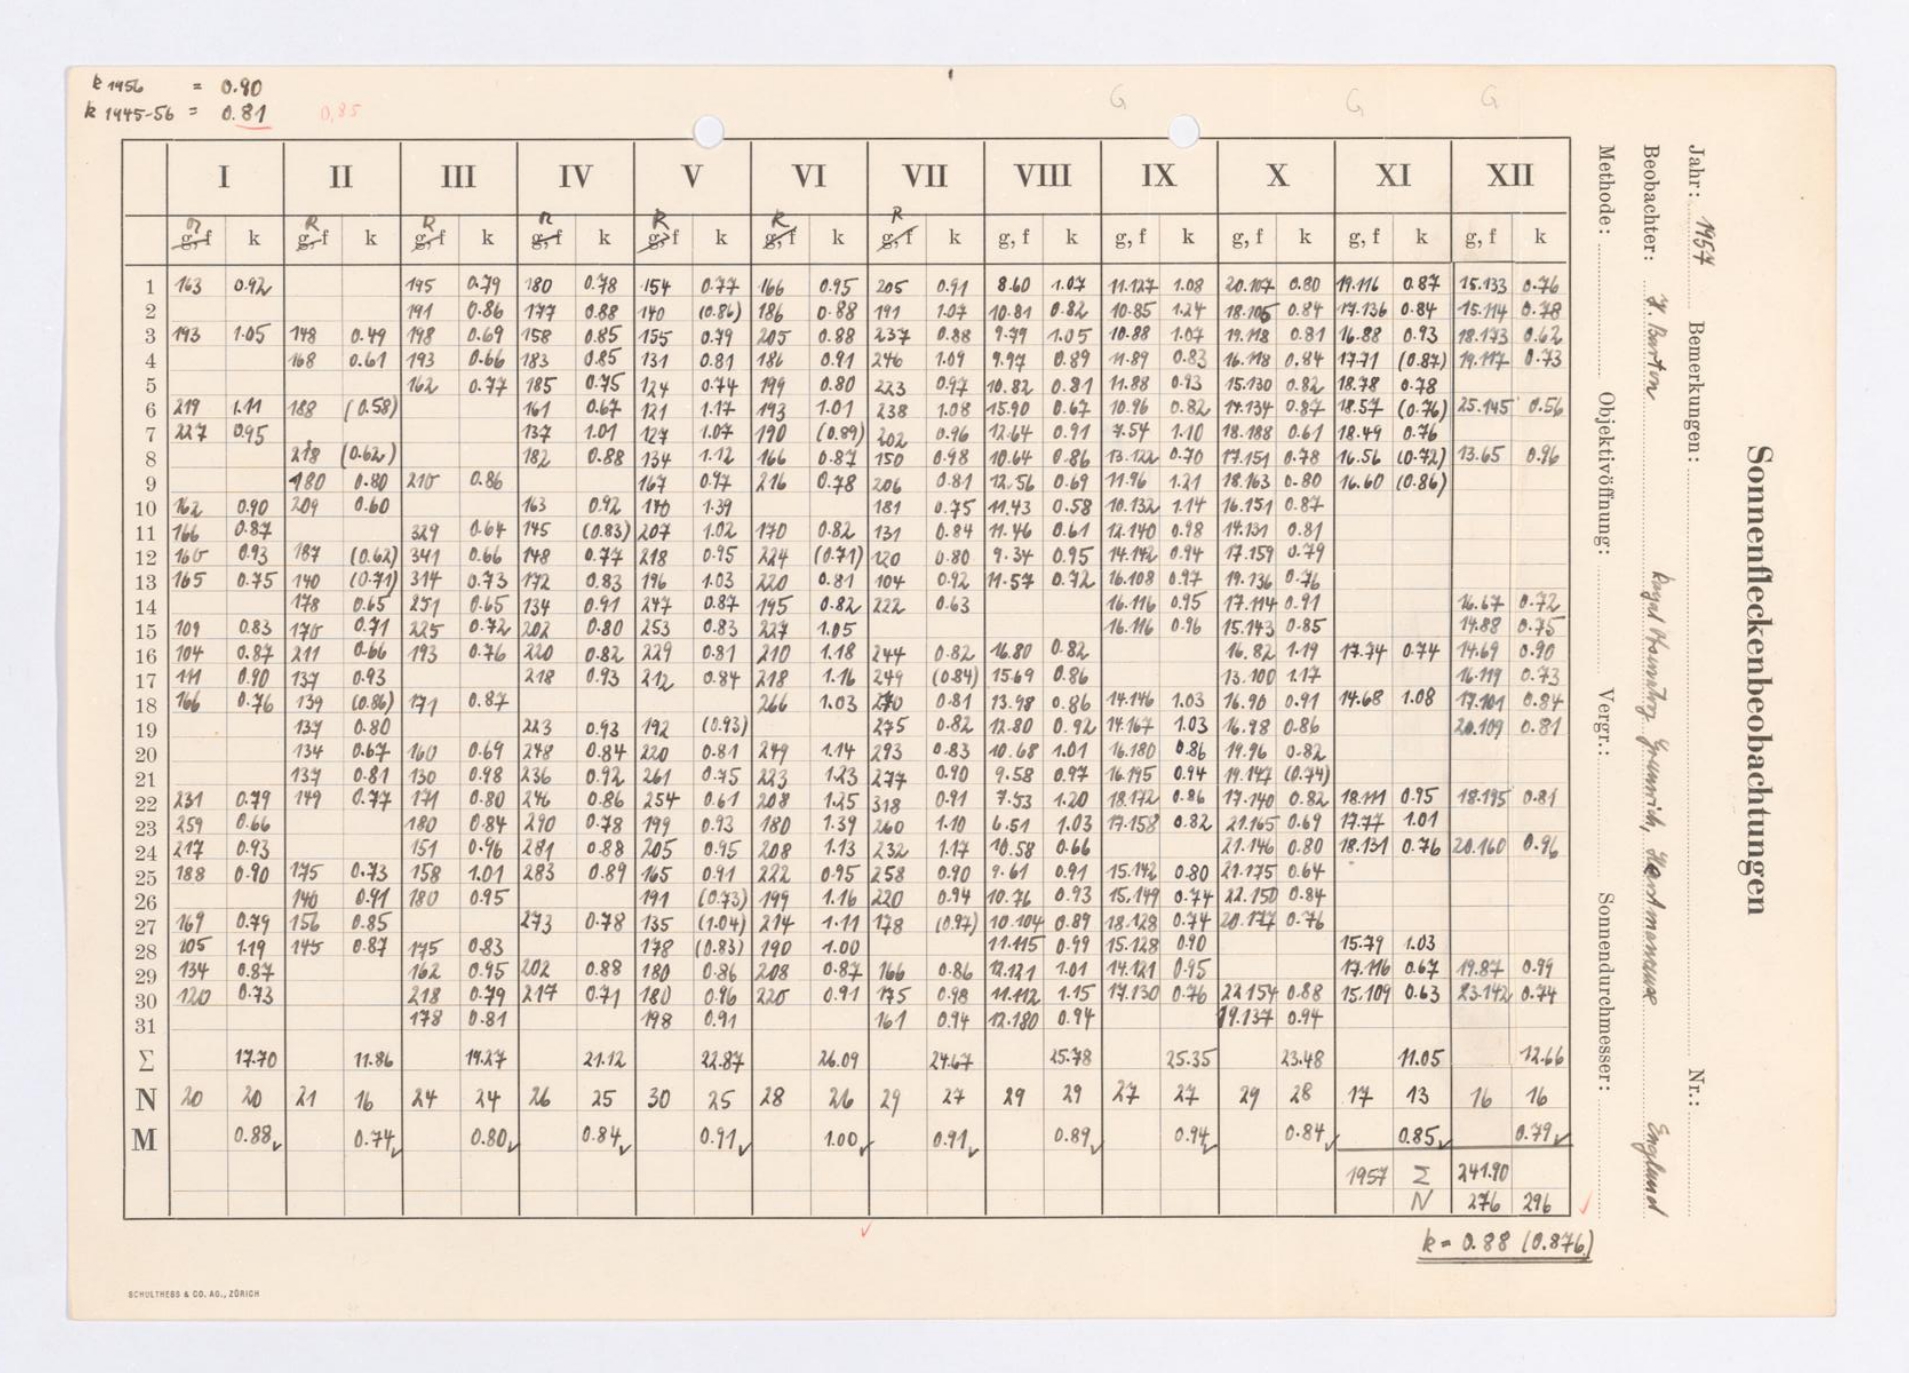 k 1956 = 0.90
k 1945-56 = 0.81 0,85
G G G
I II III IV V VI VII VIII IX X XI XII
R R R R R R R
g, f k g, f k g, f k g, f k g, f k g, f k g, f k g, f k g, f k g, f k g, f k g, f k
1 163 0.92 195 0.79 180 0.78 154 0.77 166 0.95 205 0.91 8.60 1.07 11.127 1.08 20.107 0.80 19.116 0.87 15.133 0.76
2 191 0.86 177 0.88 140 (0.86) 186 0.88 191 1.07 10.81 0.82 10.85 1.24 18.105 0.84 17.136 0.84 15.114 0.78
3 193 1.05 148 0.49 198 0.69 158 0.85 155 0.79 205 0.88 237 0.88 9.79 1.05 10.88 1.07 19.118 0.81 16.88 0.93 18.173 0.62
4 168 0.61 193 0.66 183 0.85 131 0.81 186 0.91 246 1.09 9.97 0.89 11.89 0.83 16.118 0.84 17.71 (0.87) 19.117 0.73
5 162 0.77 185 0.75 124 0.74 199 0.80 223 0.97 10.82 0.81 11.88 0.93 15.130 0.82 18.78 0.78
6 219 1.11 188 (0.58) 161 0.67 121 1.17 193 1.01 238 1.08 15.90 0.67 10.96 0.82 14.134 0.87 18.57 (0.76) 25.145 0.56
7 227 0.95 137 1.01 127 1.07 190 (0.89) 202 0.96 12.64 0.91 7.54 1.10 18.188 0.61 18.49 0.76
8 218 (0.62) 182 0.88 134 1.12 166 0.87 150 0.98 10.64 0.86 13.122 0.70 17.151 0.78 16.56 (0.72) 13.65 0.96
9 180 0.80 210 0.86 167 0.97 216 0.78 206 0.81 12.56 0.69 11.96 1.21 18.163 0.80 16.60 (0.86)
10 162 0.90 209 0.60 163 0.92 140 1.39 181 0.75 11.43 0.58 10.132 1.14 16.151 0.87
11 166 0.87 329 0.64 145 (0.83) 207 1.02 170 0.82 131 0.84 11.46 0.61 12.140 0.98 14.131 0.81
12 160 0.93 187 (0.62) 341 0.66 148 0.77 218 0.95 224 (0.71) 120 0.80 9.34 0.95 14.142 0.94 17.159 0.79
13 165 0.75 140 (0.71) 314 0.73 172 0.83 196 1.03 220 0.81 104 0.92 11.57 0.72 16.108 0.97 19.136 0.76
14 178 0.65 251 0.65 134 0.91 247 0.87 195 0.82 222 0.63 16.116 0.95 17.114 0.91 16.67 0.72
15 109 0.83 170 0.71 225 0.72 202 0.80 253 0.83 227 1.05 16.116 0.96 15.143 0.85 14.88 0.75
16 104 0.87 211 0.66 193 0.76 220 0.82 229 0.81 210 1.18 244 0.82 16.80 0.82 16.82 1.19 17.74 0.74 14.69 0.90
17 111 0.90 137 0.93 218 0.93 212 0.84 218 1.16 249 (0.84) 15.69 0.86 13.100 1.17 16.119 0.73
18 166 0.76 139 (0.86) 171 0.87 266 1.03 270 0.81 13.98 0.86 14.146 1.03 16.90 0.91 14.68 1.08 17.101 0.84
19 137 0.80 223 0.93 192 (0.93) 275 0.82 12.80 0.92 14.167 1.03 16.98 0.86 20.109 0.81
20 134 0.67 160 0.69 248 0.84 220 0.81 249 1.14 293 0.83 10.68 1.01 16.180 0.86 19.96 0.82
21 137 0.81 130 0.98 236 0.92 261 0.75 223 1.23 277 0.90 9.58 0.97 16.195 0.94 19.147 (0.74)
22 231 0.79 149 0.77 171 0.80 246 0.86 254 0.61 208 1.25 318 0.91 7.53 1.20 18.172 0.86 17.140 0.82 18.111 0.95 18.195 0.81
23 259 0.66 180 0.84 290 0.78 199 0.93 180 1.39 260 1.10 6.51 1.03 17.158 0.82 21.165 0.69 17.77 1.01
24 217 0.93 151 0.96 281 0.88 205 0.95 208 1.13 232 1.17 10.58 0.66 21.146 0.80 18.131 0.76 20.160 0.96
25 188 0.90 175 0.73 158 1.01 283 0.89 165 0.91 222 0.95 258 0.90 9.61 0.91 15.142 0.80 21.175 0.64
26 140 0.91 180 0.95 191 (0.73) 199 1.16 220 0.94 10.76 0.93 15.149 0.74 22.150 0.84
27 169 0.79 156 0.85 273 0.78 135 (1.04) 214 1.11 178 (0.97) 10.104 0.89 18.128 0.74 20.177 0.76
28 105 1.19 145 0.87 175 0.83 178 (0.83) 190 1.00 11.115 0.99 15.128 0.90 15.79 1.03
29 134 0.87 162 0.95 202 0.88 180 0.86 208 0.87 166 0.86 12.121 1.01 14.121 0.95 17.116 0.67 19.87 0.99
30 120 0.73 218 0.79 217 0.71 180 0.96 220 0.91 175 0.98 11.112 1.15 17.130 0.76 22.154 0.88 15.109 0.63 23.142 0.74
31 178 0.81 198 0.91 161 0.94 12.180 0.94 19.137 0.94
Σ 17.70 11.86 19.27 21.12 22.87 26.09 24.67 25.78 25.35 23.48 11.05 12.66
N 20 20 21 16 24 24 26 25 30 25 28 26 29 27 29 29 27 27 29 28 17 13 16 16
M 0.88 0.74 0.80 0.84 0.91 1.00 0.91 0.89 0.94 0.84 0.85 0.79
1957 Σ 241.90
N 276 296
k = 0.88 (0.876)
SCHULTHESS & CO. AG., ZÜRICH
Sonnenfleckenbeobachtungen
Jahr: 1957 Bemerkungen: Nr.:
Beobachter: H. Barton England
Methode: Objektivöffnung: Vergr.: Sonnendurchmesser: